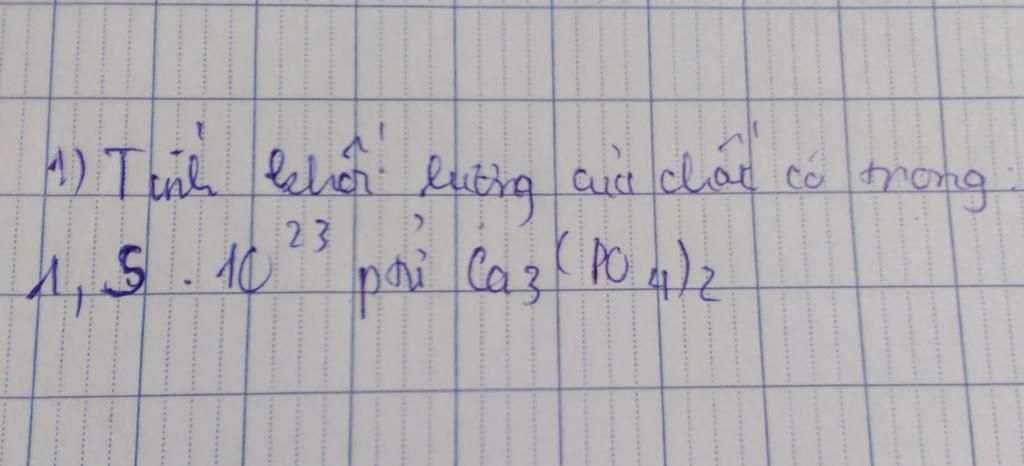 1) Tính khối lượng của chất có trong:
1,5 . 10²³ ptử Ca₃(PO₄)₂